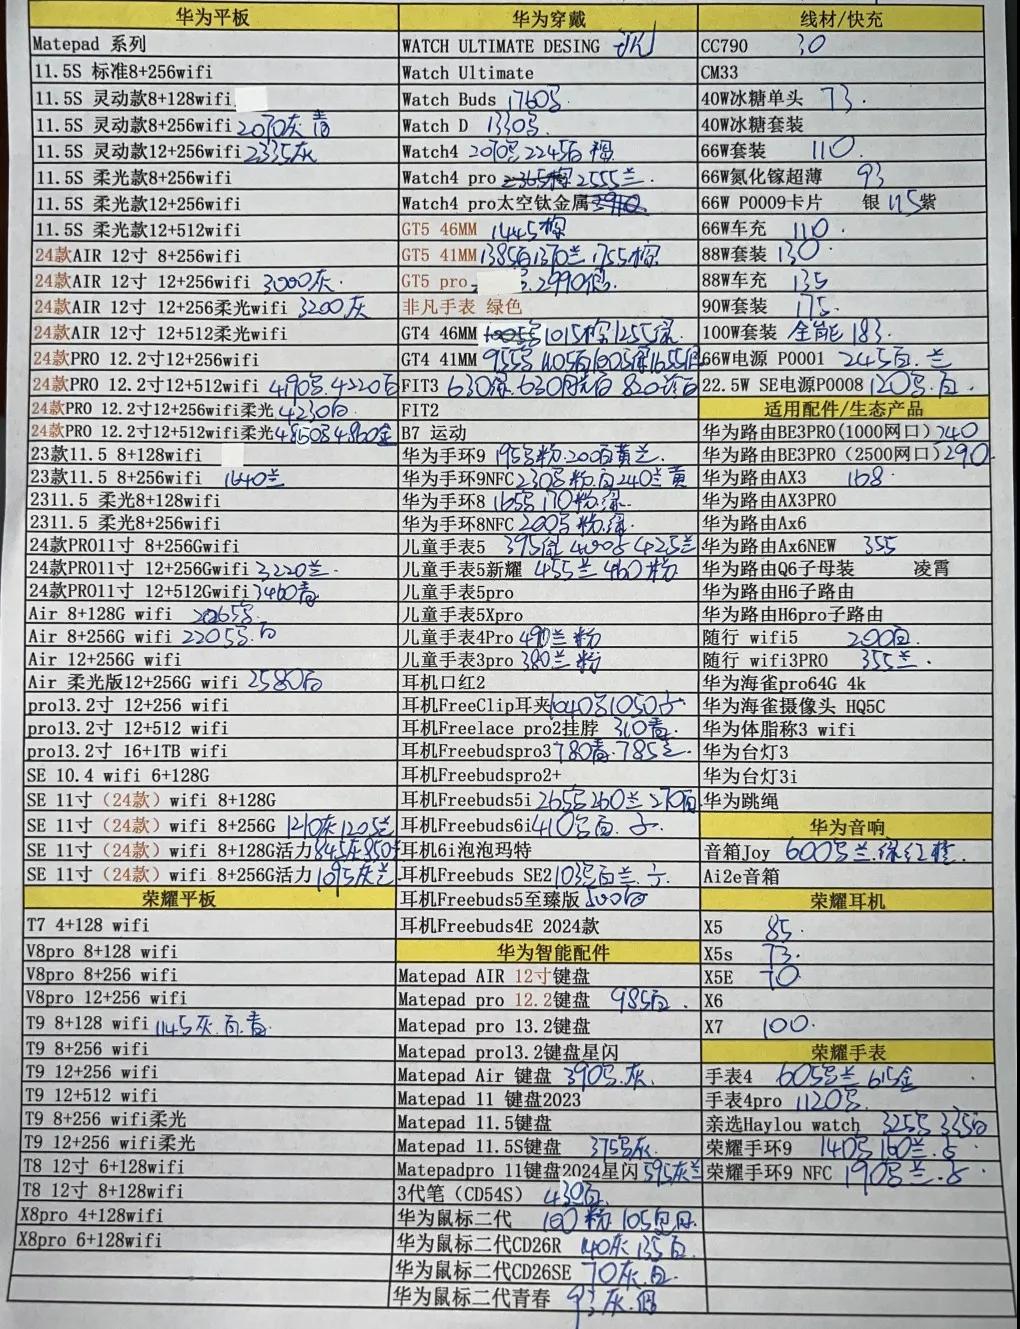 华为平板
Matepad 系列
11.5S 标准8+256wifi
11.5S 灵动款8+128wifi
11.5S 灵动款8+256wifi 2070灰 青
11.5S 灵动款12+256wifi 2335灰
11.5S 柔光款8+256wifi
11.5S 柔光款12+256wifi
11.5S 柔光款12+512wifi
24款AIR 12寸 8+256wifi
24款AIR 12寸 12+256wifi 3000灰
24款AIR 12寸 12+256柔光wifi 3200灰
24款AIR 12寸 12+512柔光wifi
24款PRO 12.2寸12+256wifi
24款PRO 12.2寸12+512wifi 4220白
24款PRO 12.2寸12+256wifi柔光 4230白
24款PRO 12.2寸12+512wifi柔光 4860金
23款11.5 8+128wifi
23款11.5 8+256wifi 1640兰
2311.5 柔光8+128wifi
2311.5 柔光8+256wifi
24款PRO11寸 8+256Gwifi
24款PRO11寸 12+256Gwifi 3220兰.
24款PRO11寸 12+512Gwifi 3460青
Air 8+128G wifi
Air 8+256G wifi 2205 白
Air 12+256G wifi
Air 柔光版12+256G wifi 2580白
pro13.2寸 12+256 wifi
pro13.2寸 12+512 wifi
pro13.2寸 16+1TB wifi
SE 10.4 wifi 6+128G
SE 11寸（24款）wifi 8+128G
SE 11寸（24款）wifi 8+256G 1210灰1205兰
SE 11寸（24款）wifi 8+128G活力 845灰850
SE 11寸（24款）wifi 8+256G活力 1095灰兰
荣耀平板
T7 4+128 wifi
V8pro 8+128 wifi
V8pro 8+256 wifi
V8pro 12+256 wifi
T9 8+128 wifi 1145灰.白.青.
T9 8+256 wifi
T9 12+256 wifi
T9 12+512 wifi
T9 8+256 wifi柔光
T9 12+256 wifi柔光
T8 12寸 6+128wifi
T8 12寸 8+128wifi
X8pro 4+128wifi
X8pro 6+128wifi
华为穿戴
WATCH ULTIMATE DESING
Watch Ultimate
Watch Buds 1760
Watch D 1330
Watch4 2070 2245
Watch4 pro 2555兰.
Watch4 pro太空钛金属
GT5 46MM 1445棕
GT5 41MM 1385白1370兰1755棕
GT5 pro 2990
非凡手表 绿色
GT4 46MM 1015棕1255绿
GT4 41MM 955 1105白
FIT3 630 820
FIT2
B7 运动
华为手环9 195 粉.200白黄兰
华为手环9NFC 230 粉.白240兰黄
华为手环8 165 170粉.绿
华为手环8NFC 200 粉.绿.
儿童手表5 425兰
儿童手表5新耀 455兰 460粉
儿童手表5pro
儿童手表5Xpro
儿童手表4Pro 490兰 粉
儿童手表3pro 380兰 粉
耳机口红2
耳机FreeClip耳夹 1040 1050
耳机Freelace pro2挂脖 310青.
耳机Freebudspro3 780青.785兰
耳机Freebudspro2+
耳机Freebuds5i 265 260兰 270白
耳机Freebuds6i 410 白.
耳机6i泡泡玛特
耳机Freebuds SE2 103 白兰.
耳机Freebuds5至臻版 500白
耳机Freebuds4E 2024款
华为智能配件
Matepad AIR 12寸键盘
Matepad pro 12.2键盘 985白.
Matepad pro 13.2键盘
Matepad pro13.2键盘星闪
Matepad Air 键盘 390 灰.
Matepad 11 键盘2023
Matepad 11.5键盘
Matepad 11.5S键盘 375 灰.
Matepadpro 11键盘2024星闪 595灰兰
3代笔（CD54S） 430白.
华为鼠标二代 100粉 105
华为鼠标二代CD26R 140灰135白
华为鼠标二代CD26SE 70灰.白.
华为鼠标二代青春 93灰.
线材/快充
CC790 30
CM33
40W冰糖单头 73.
40W冰糖套装
66W套装 110.
66W氮化镓超薄 93
66W P0009卡片 银 115紫
66W车充 110.
88W套装 130
88W车充 135
90W套装 175.
100W套装 全能 183.
66W电源 P0001 245白.兰
22.5W SE电源P0008 120 白.
适用配件/生态产品
华为路由BE3PRO(1000网口) 240
华为路由BE3PRO（2500网口）290
华为路由AX3 168.
华为路由AX3PRO
华为路由Ax6
华为路由Ax6NEW 355
华为路由Q6子母装 凌霄
华为路由H6子路由
华为路由H6pro子路由
随行 wifi5 200白.
随行 wifi3PRO 355兰.
华为海雀pro64G 4k
华为海雀摄像头 HQ5C
华为体脂称3 wifi
华为台灯3
华为台灯3i
华为跳绳
华为音响
音箱Joy 600 兰.绿红橙.
Ai2e音箱
荣耀耳机
X5 85.
X5s 73.
X5E 70
X6
X7 100.
荣耀手表
手表4 605 兰 615金
手表4pro 1120
亲选Haylou watch 325 335白
荣耀手环9 140 160兰.
荣耀手环9 NFC 190 兰.